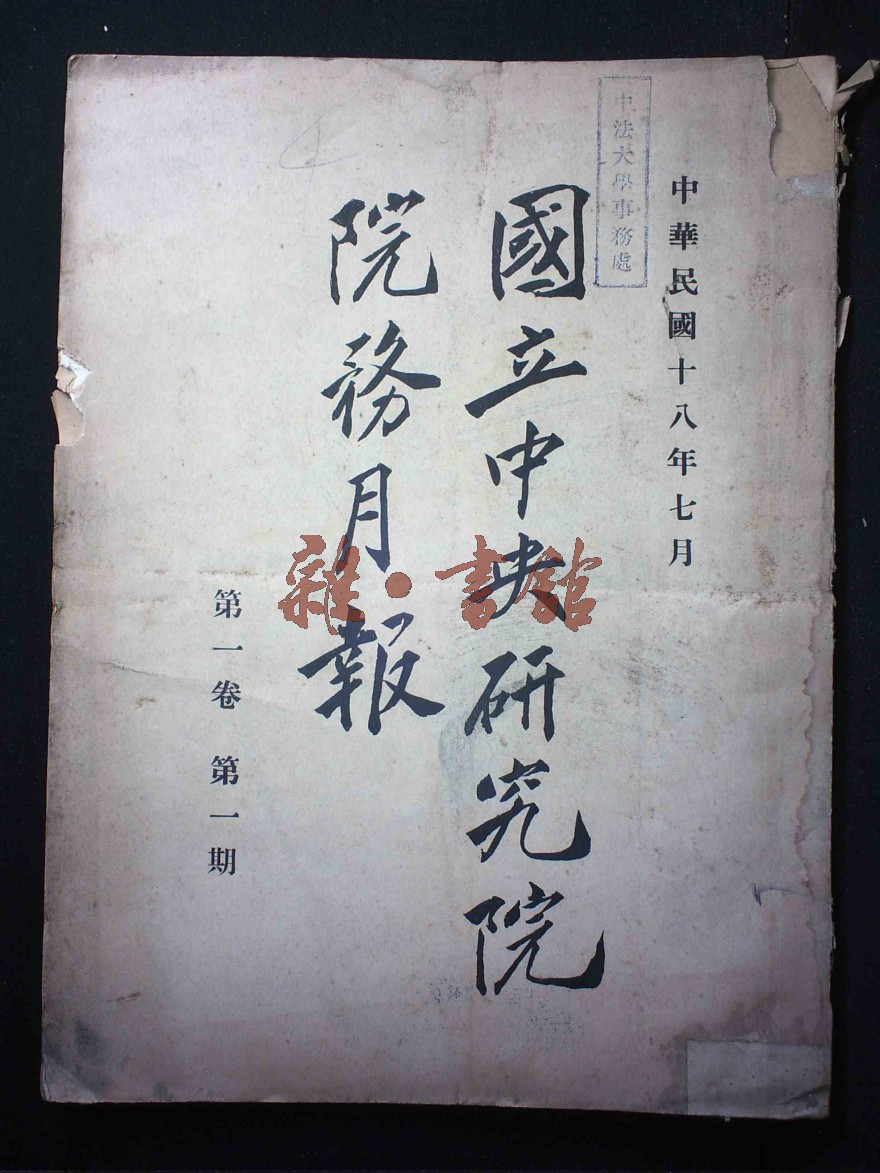 中華民國十八年七月
中法大學事務處
國立中央研究院
院務月報
第一卷 第一期
雜·書館